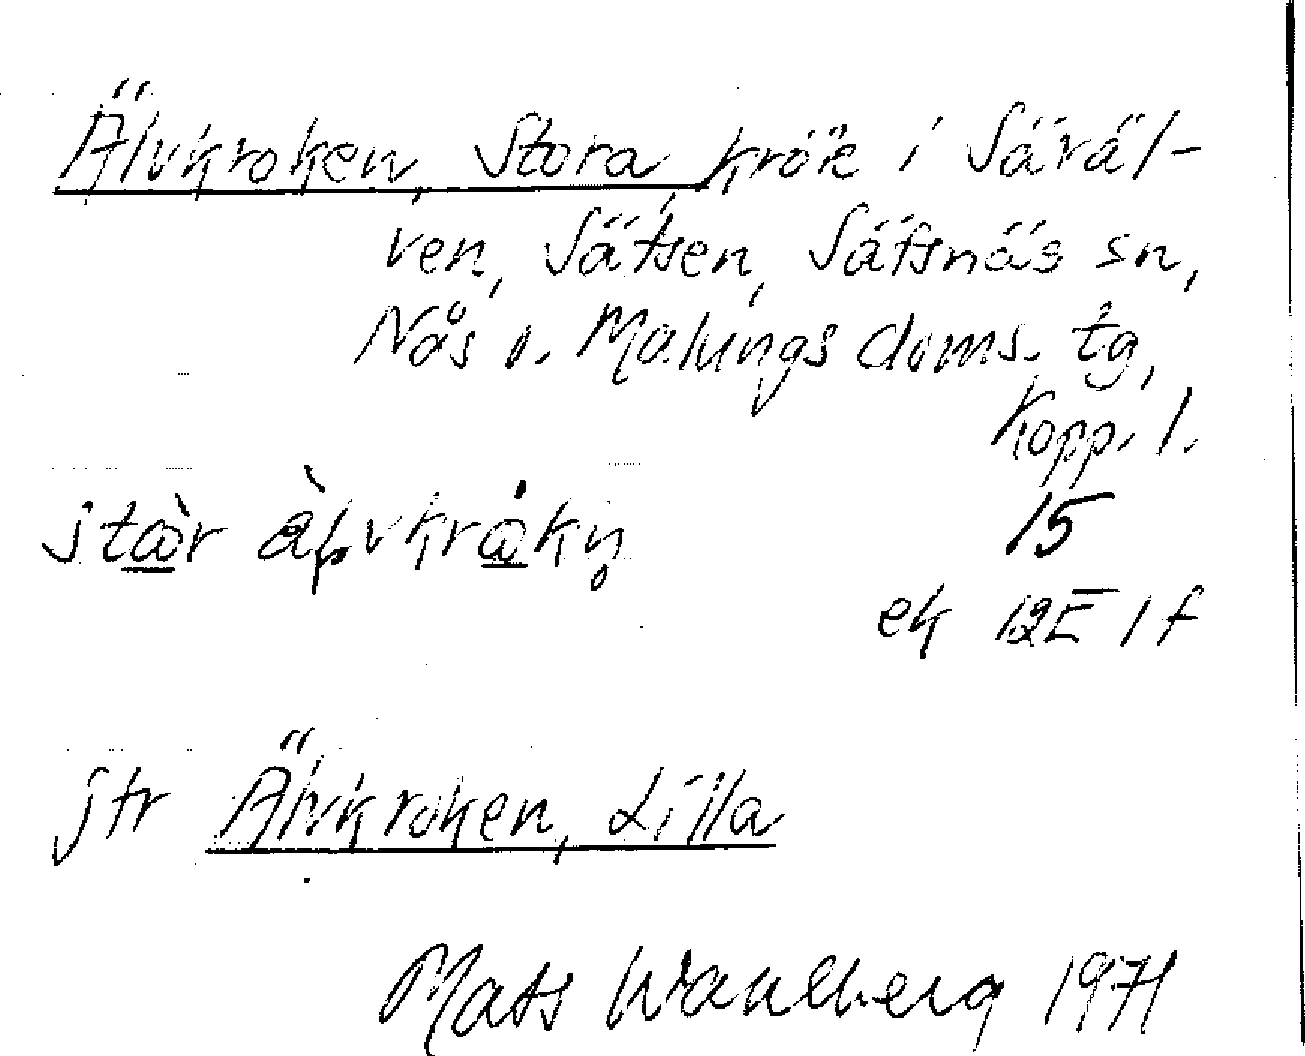 Älvkroken, Stora, krök i Säräl-
ven, Sätsen, Säfsnäs sn,
Nås o. Malungs doms. tg,
Kopp. l.
15
ek 12E 1f
jfr Älvkroken, Lilla
Mats Wahlberg 1971